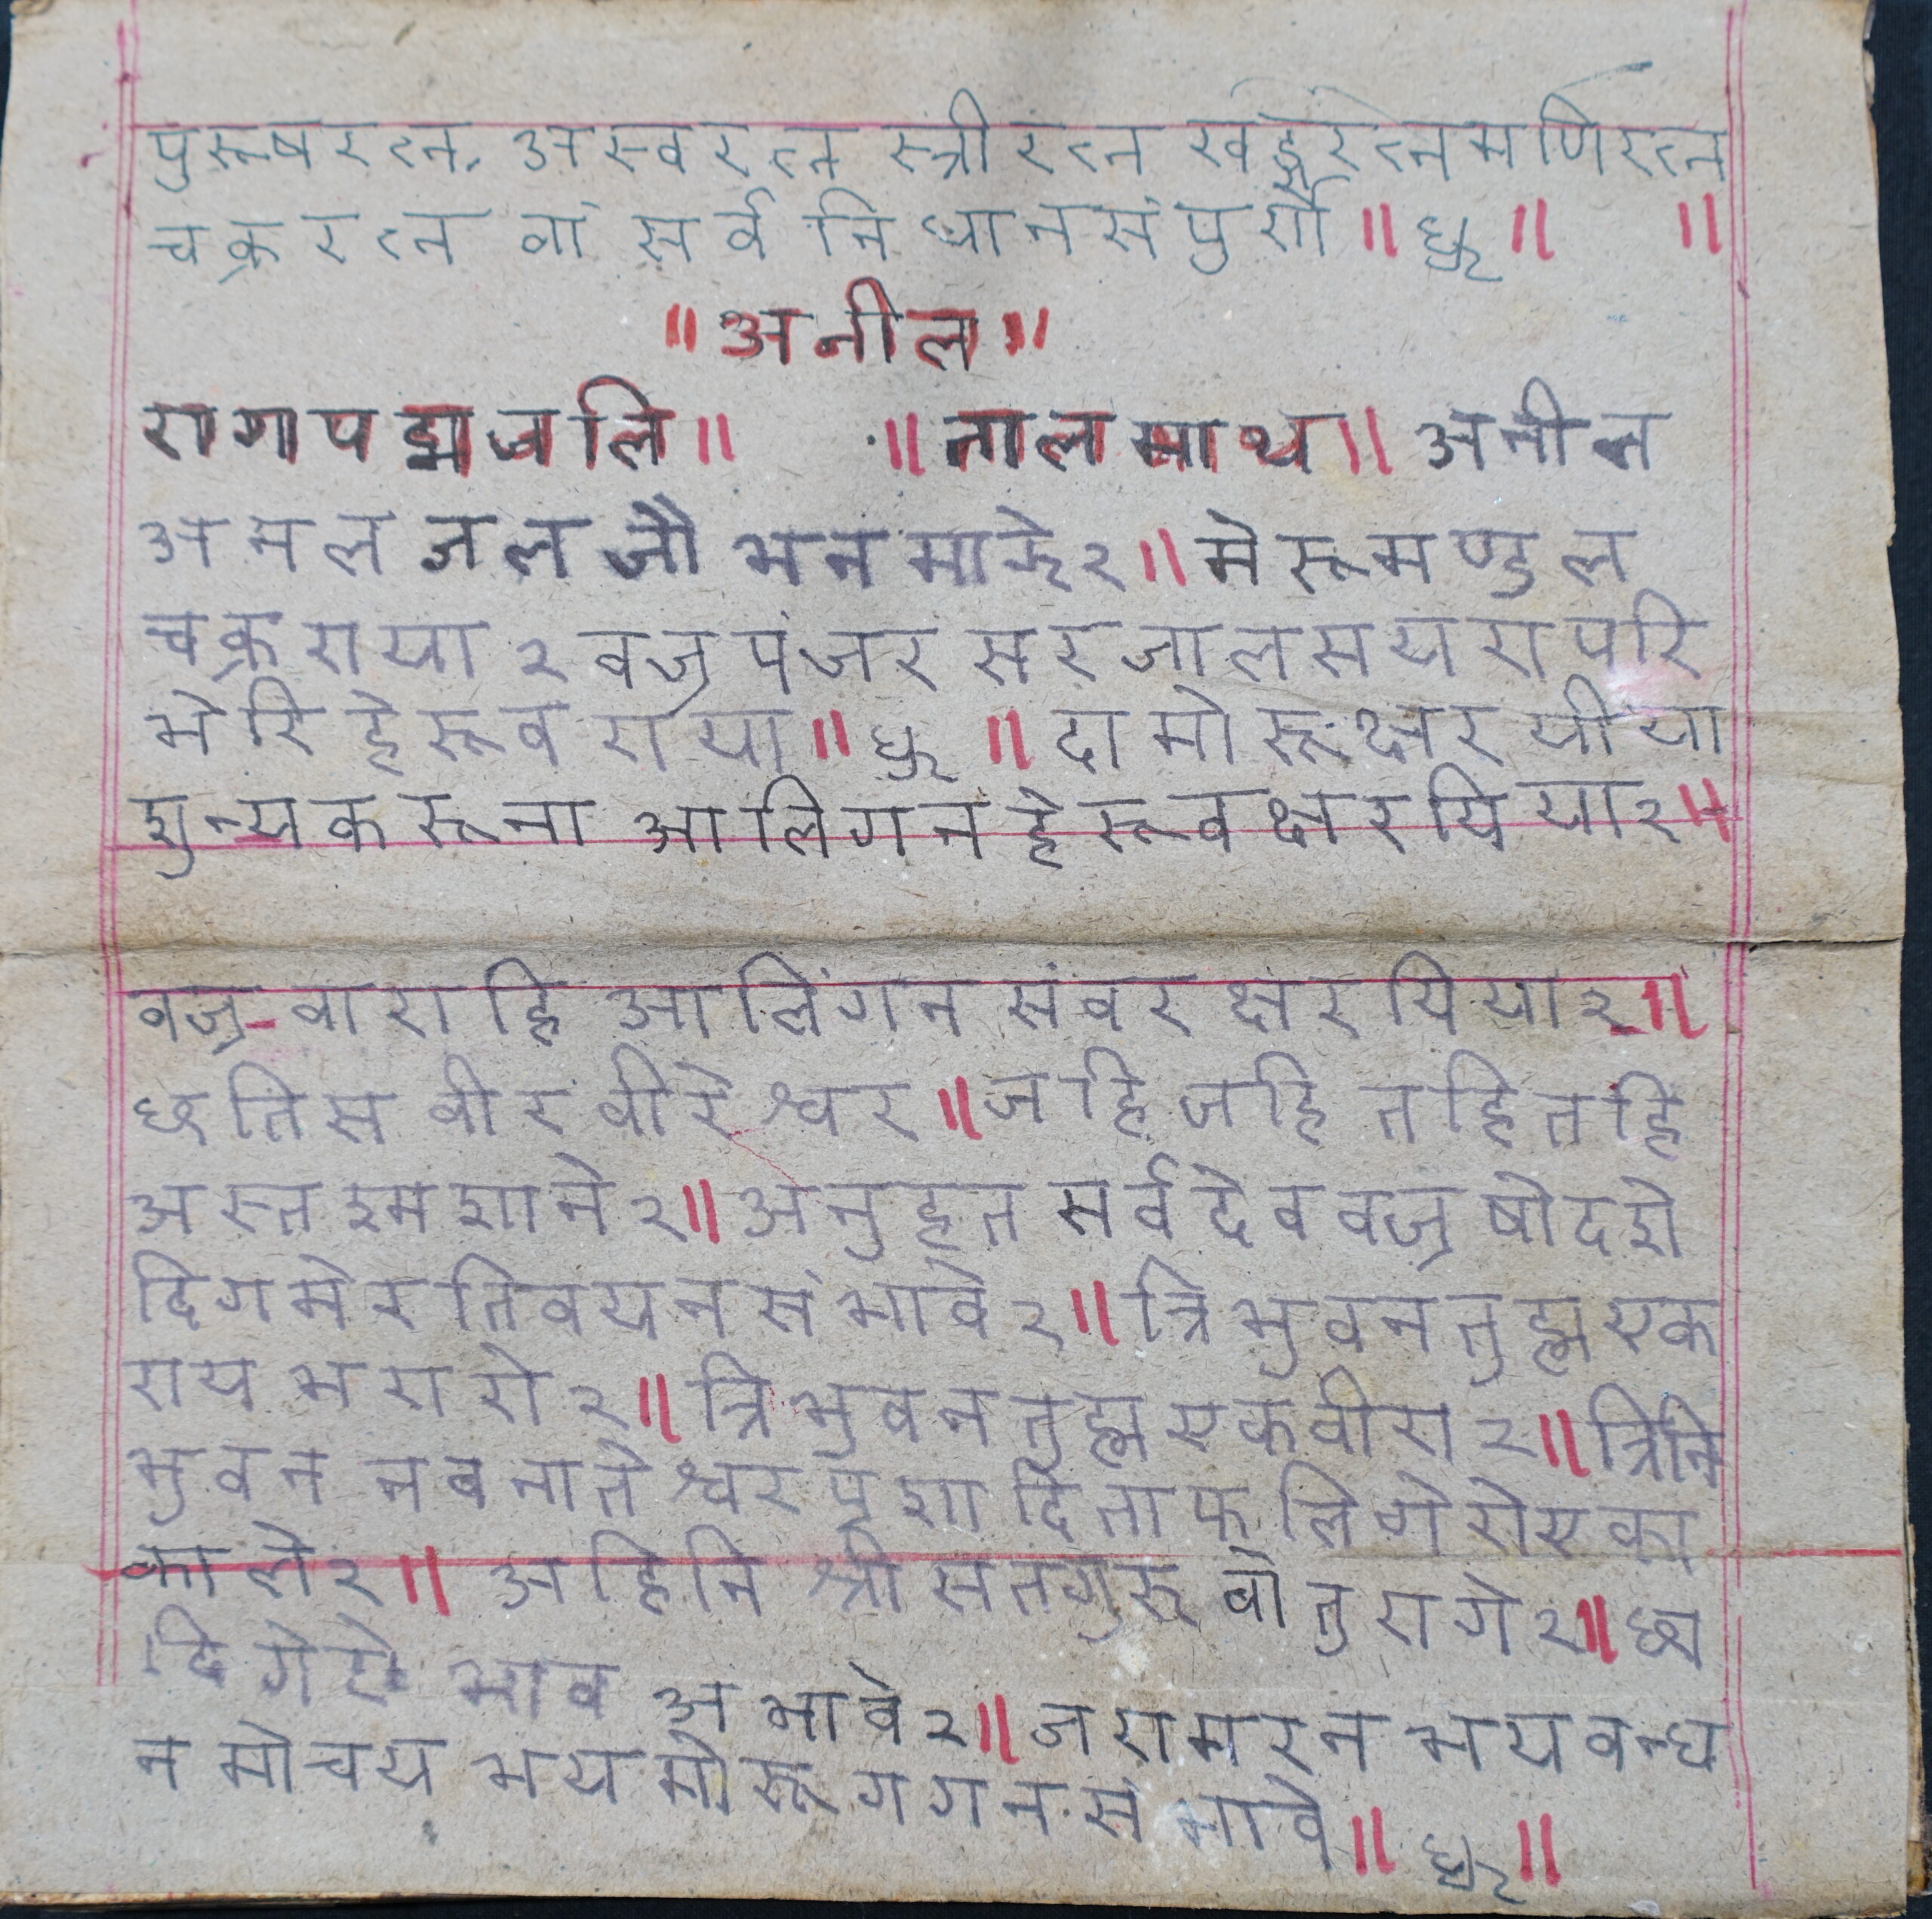 पुरूष रत्न, अस्व रत्न स्त्री रत्न खड्गरत्न मणिरत्न
चक्र रत्न वां सर्व निधान संपुर्ण ॥ ध्रु ॥ ॥
॥ अनील ॥
राग पद्मजलि ॥ ॥ ताल माथ ॥ अनील
अनल जल जौ भन माझेर २ ॥ मेरूमण्डल
चक्र राया २ वज्र पंजर सर जाल सय रा परि
भेरि हेरूव राया ॥ ध्रु ॥ दा मो रू क्षर यीया
शुन्य करूना आलिगन हेरूव क्षरयियार २ ॥
वज्र-वाराहि आलिंगन संवर क्षरयिया २ ॥
छतिस वीर वीरेश्वर ॥ जहि जहि तहि तहि
अस्त श्मशाने २ ॥ अनुहत सर्व देव वज्र षोदशे
दिगमे रतिवयन सं भावे २ ॥ त्रिभुवन तुह्म एक
राय भ रा रो २ ॥ त्रिभुवन तुह्म एक वीरा २ ॥ त्रिनि
भुवन नव नाते श्वर पृशादिता फलिगे रोएका
काले २ ॥ अहिनि श्री सतगुरू वोनु रागे २ ॥ छा
दिगेरे भाव अभावे २ ॥ जरामरन भय वन्ध
न मोचय भय मोरू गगन सं भावे ॥ ध्रु ॥